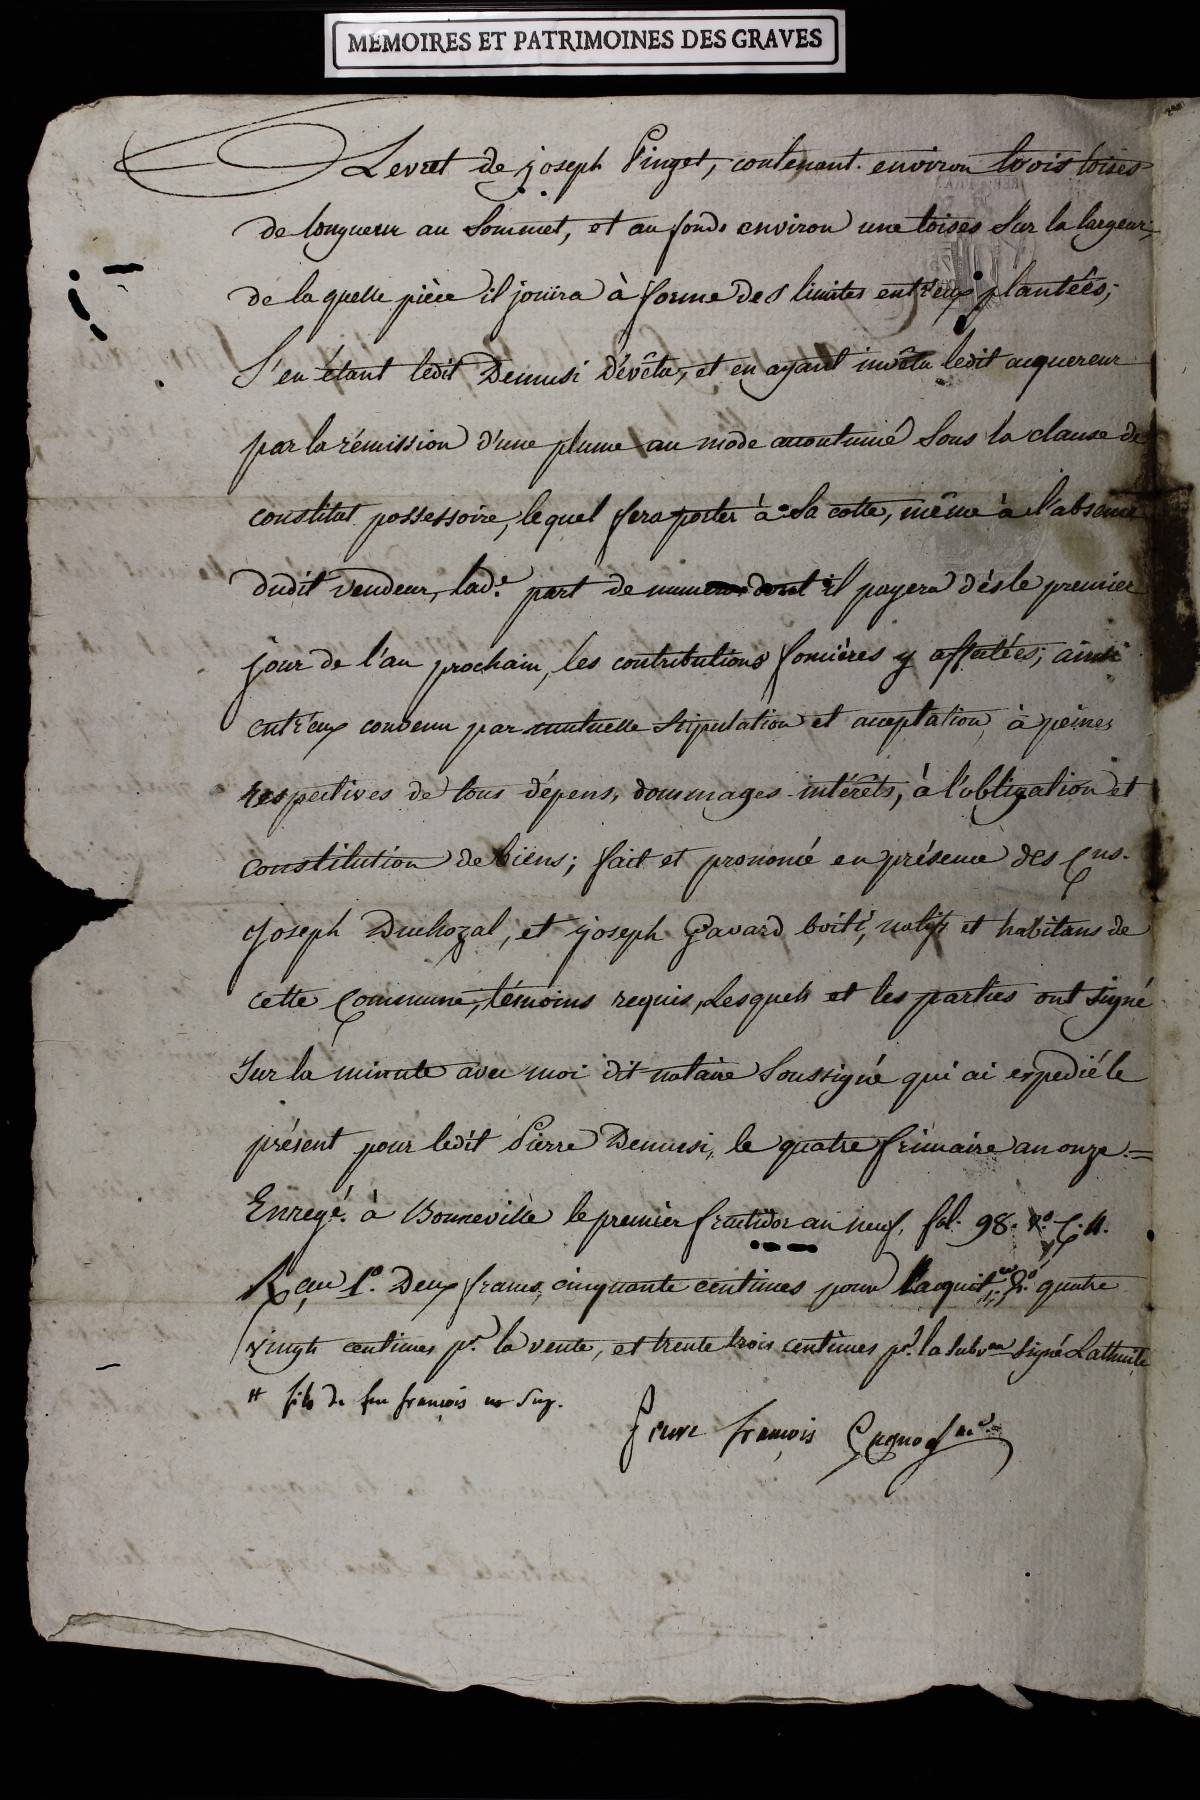 MEMOIRES ET PATRIMOINES DES GRAVES
Levret de joseph Pinget, contenant environ trois toises
de longueur au Sommet, et au fonds environ une toises Sur la largeur,
de laquelle pièce il jouira à forme des limites entr'eux plantées;
S'en étant ledit Demusi Dévêtu, et en ayant invêtu ledit acquereur
par la rémission d'une plume au mode accoutumé Sous la clause de
constitut possessoire, lequel fera porter à Sa cotte, même à l'absence
dudit vendeur, lad.e part de dont il payera dès le premier
jour de l'an prochain, les contributions foncières y affectées; ainsi
entr'eux convenu par mutuelle Stipulation et acceptation, à peines
respectives de tous dépens, dommages intérêts, à l'obligation et
constitution de biens; fait et prononcé en présence des Cns.
joseph Duchozal, et joseph Gavard boité, natifs et habitans de
cette Commune, témoins requis, Lesquels et les parties ont Signé
Sur la minute avec moi dit notaire Soussigné qui ai expedié le
présent pour ledit Pierre Demusi, le quatre frimaire an onze.=
Enregé. à Bonneville le premier fructidor an neuf, fol. 98. Vo. C. 4.
Reçu 1o. Deux francs, cinquante centimes pour l'acquit, 2o. quatre
vingt centimes pr. la vente, et trente trois centimes pr. la Subvon Signé Lathuile
# fils de feu françois
françois